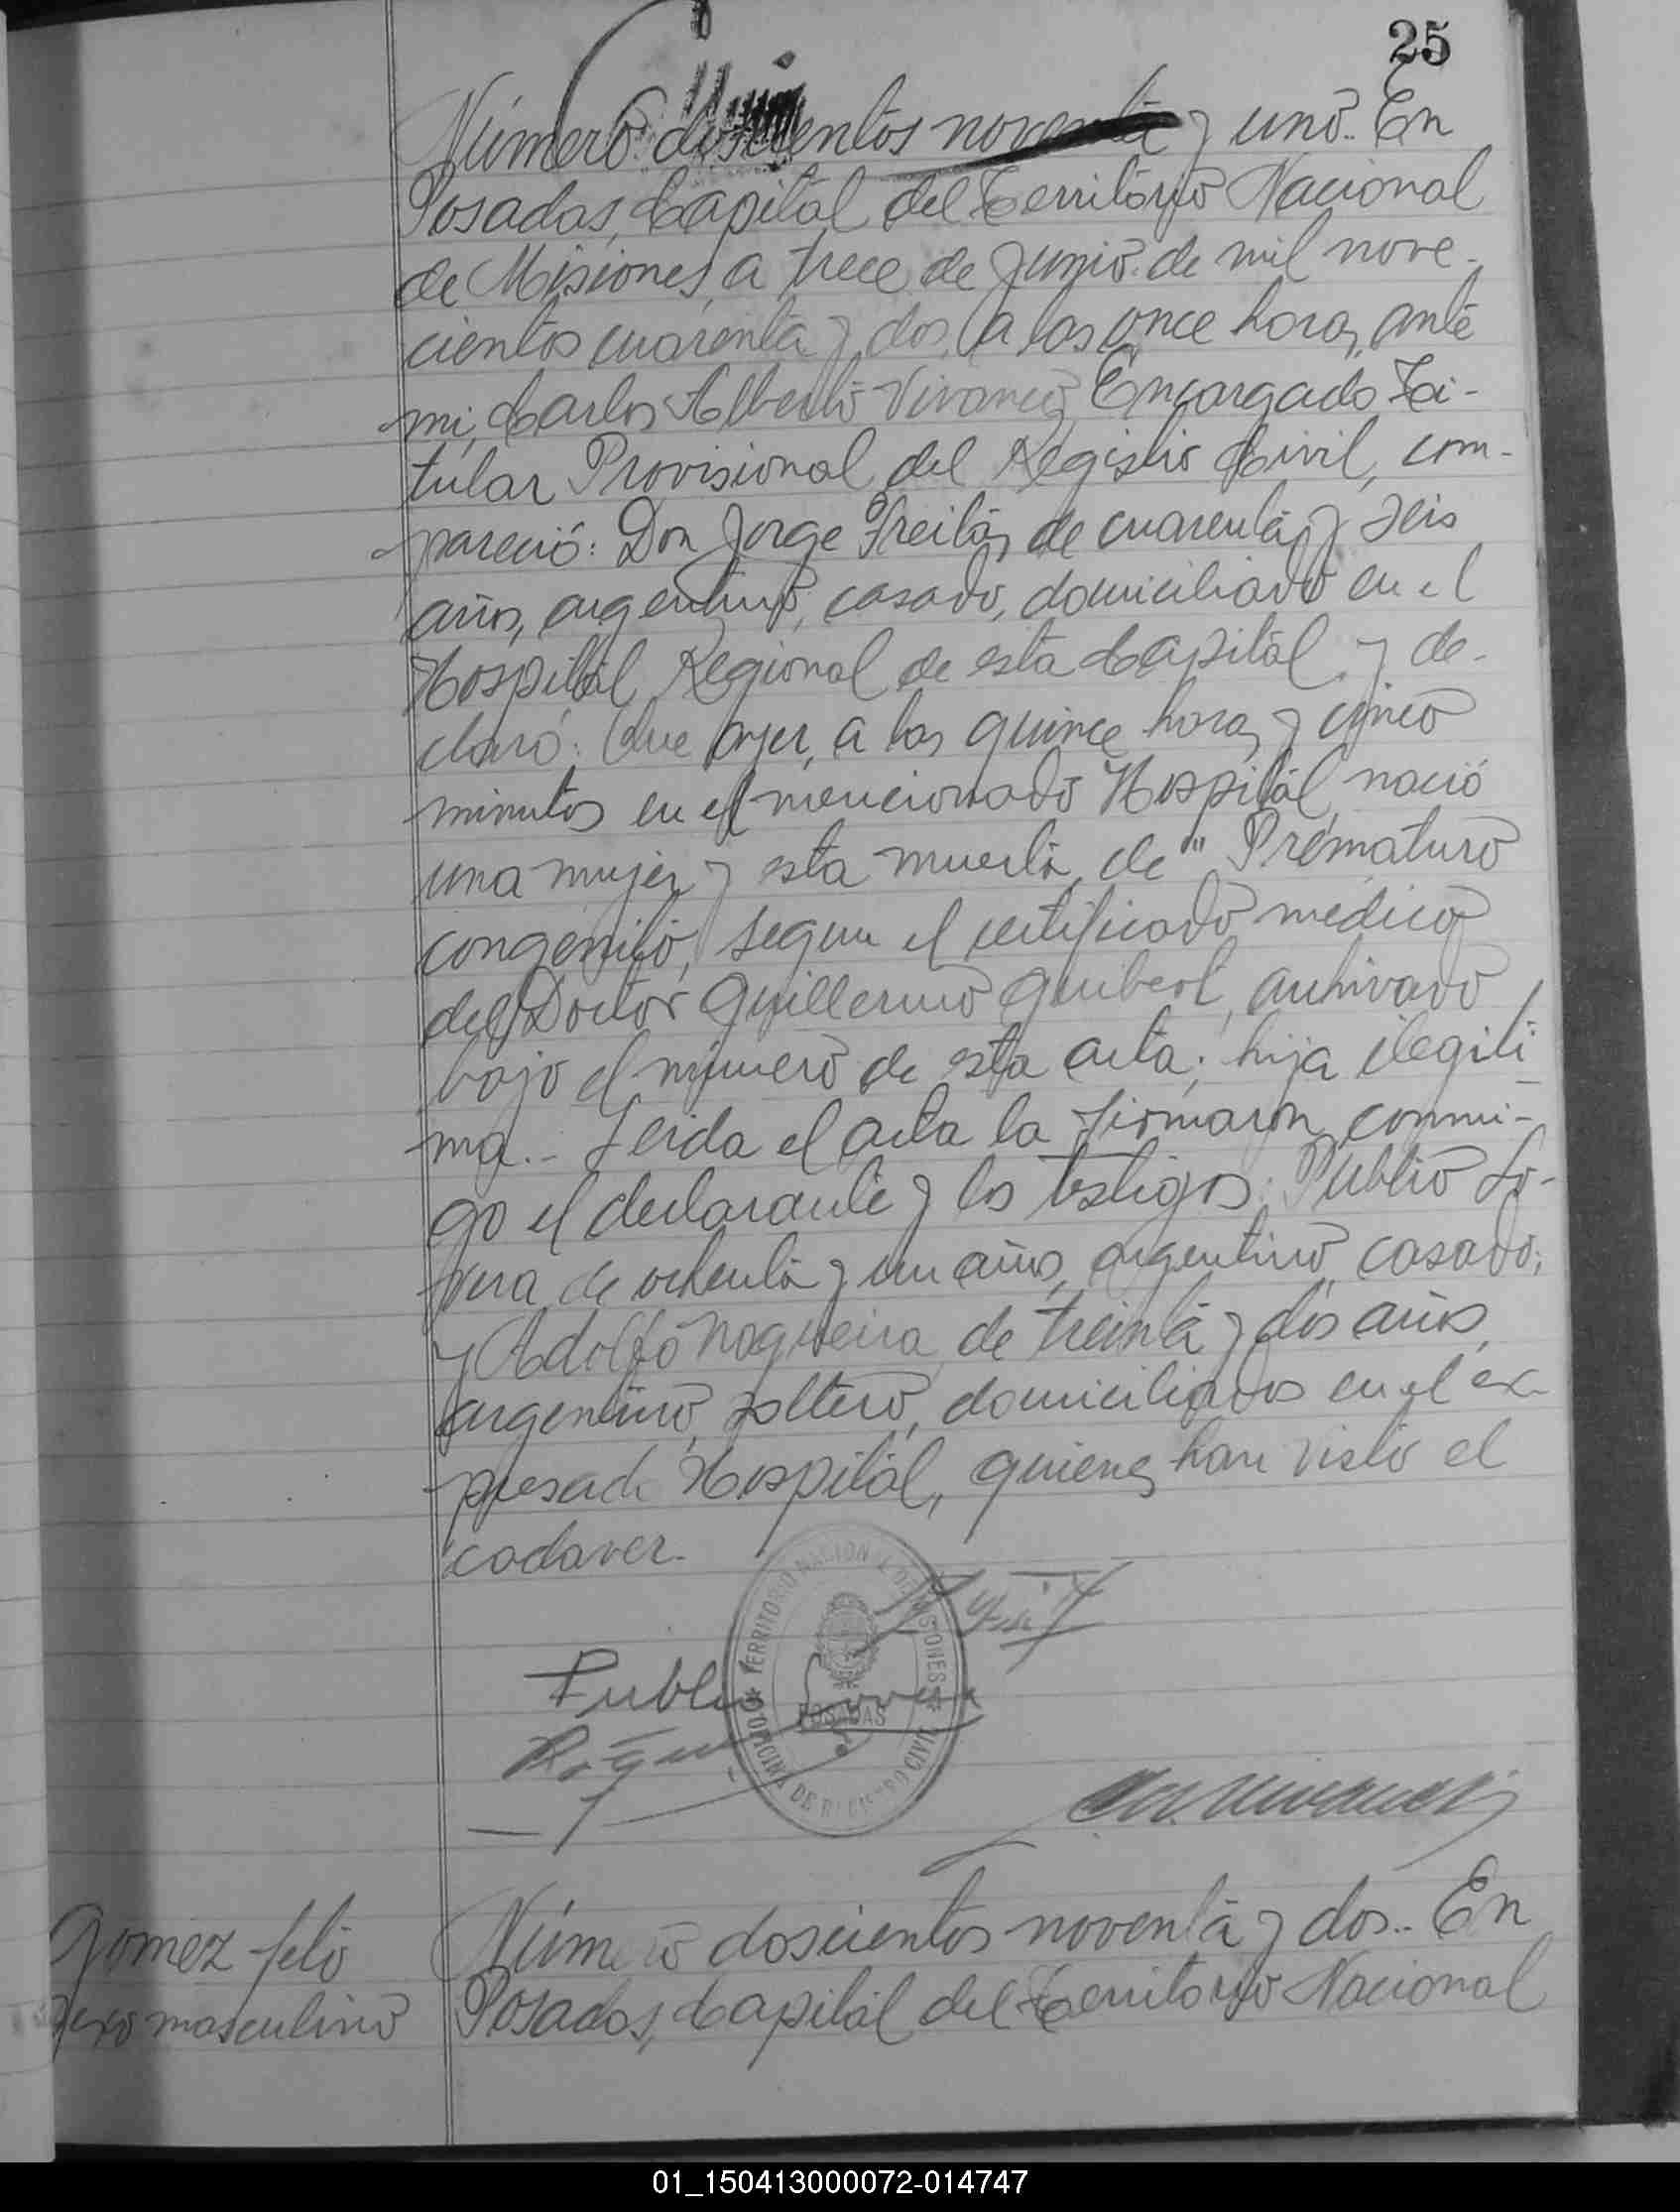 25
Número doscientos noventa y uno.. En
Posadas, Capital del Territorio Nacional
de Misiones, a trece de Junio de mil nove-
cientos cuarenta y dos, a las once horas, ante
mi, Carlos Alberto Vivanco, Encargado Ti-
tular Provisional del Registro Civil, com-
pareció: Don Jorge Freitas, de cuarenta y seis
años, argentino, casado, domiciliado en el
Hospital Regional de esta Capital y de-
claró: Que ayer, a las quince horas y cinco
minutos en el mencionado Hospital, nació
una mujer y esta muerta, de " Prematuro
congénito, segun el certificado médico
del Doctor Guillermo Guibert, archivado
bajo el número de esta acta; hija ilegiti-
ma.- Leida el acta la firmaron conmi-
go el declarante y los testigos: Publio Lo-
vera, de ochenta y un años, argentino, casado;
y Adolfo Nogueira, de treinta y dos años,
argentino, soltero, domiciliados en el ex-
presado Hospital, quienes han visto el
cadaver.-
TERRITORIO NACIONAL DE MISIONES
POSADAS
OFICINA DE REGISTRO CIVIL
Publio
Gomez feto
sexo masculino
Número doscientos noventa y dos.. En
Posadas, Capital del Territorio Nacional
01_150413000072-014747